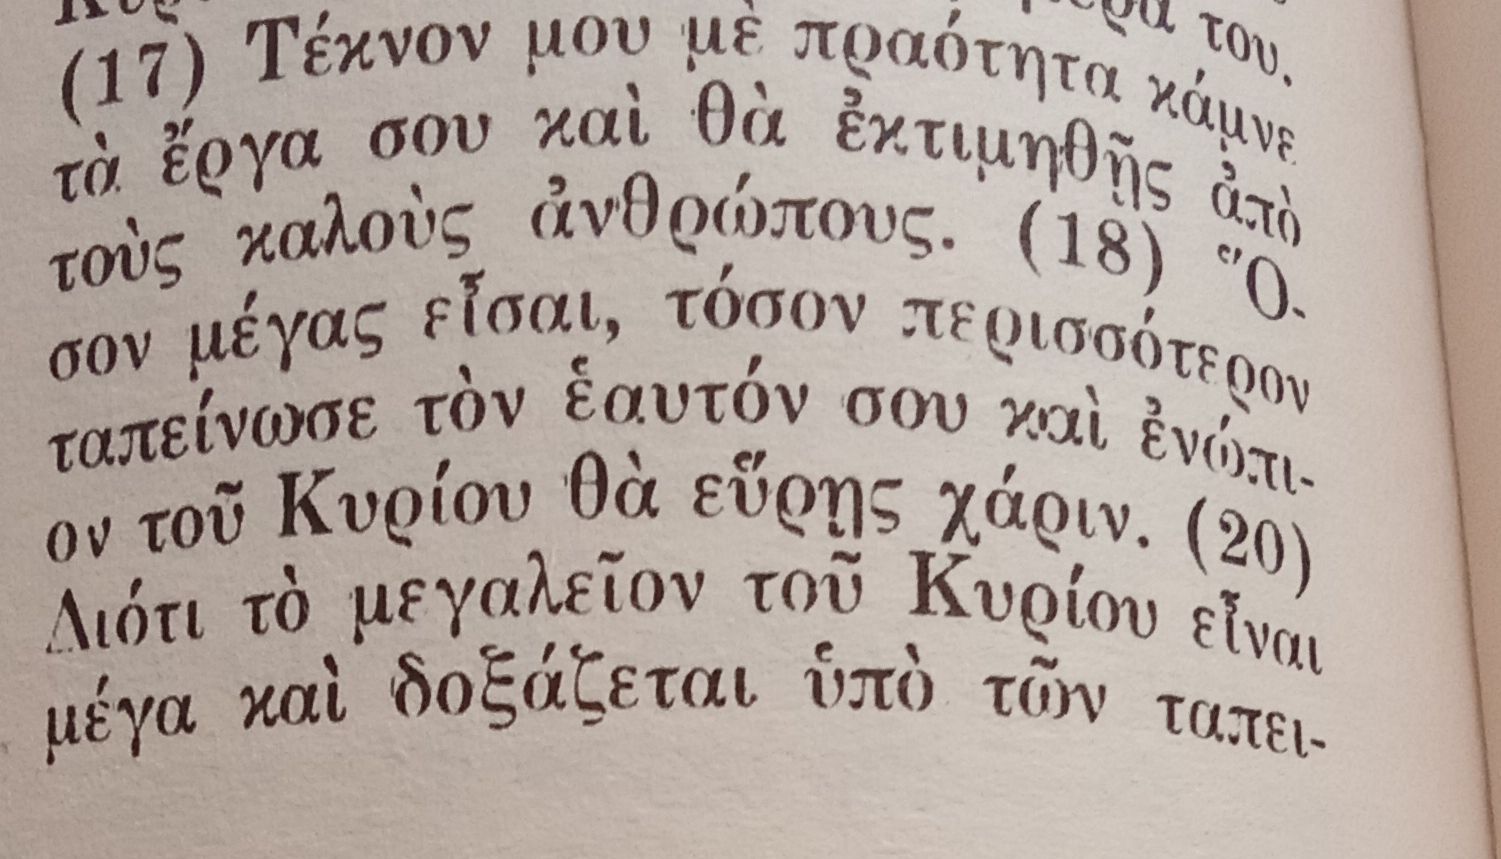 του.
(17) Τέκνον μου μὲ πραότητα κάμνε
τὰ ἔργα σου καὶ θὰ ἐκτιμηθῇς ἀπὸ
τοὺς καλοὺς ἀνθρώπους. (18) Ὅ-
σον μέγας εἶσαι, τόσον περισσότερον
ταπείνωσε τὸν ἑαυτόν σου καὶ ἐνώπι-
ον τοῦ Κυρίου θὰ εὕρῃς χάριν. (20)
Διότι τὸ μεγαλεῖον τοῦ Κυρίου εἶναι
μέγα καὶ δοξάζεται ὑπὸ τῶν ταπει-